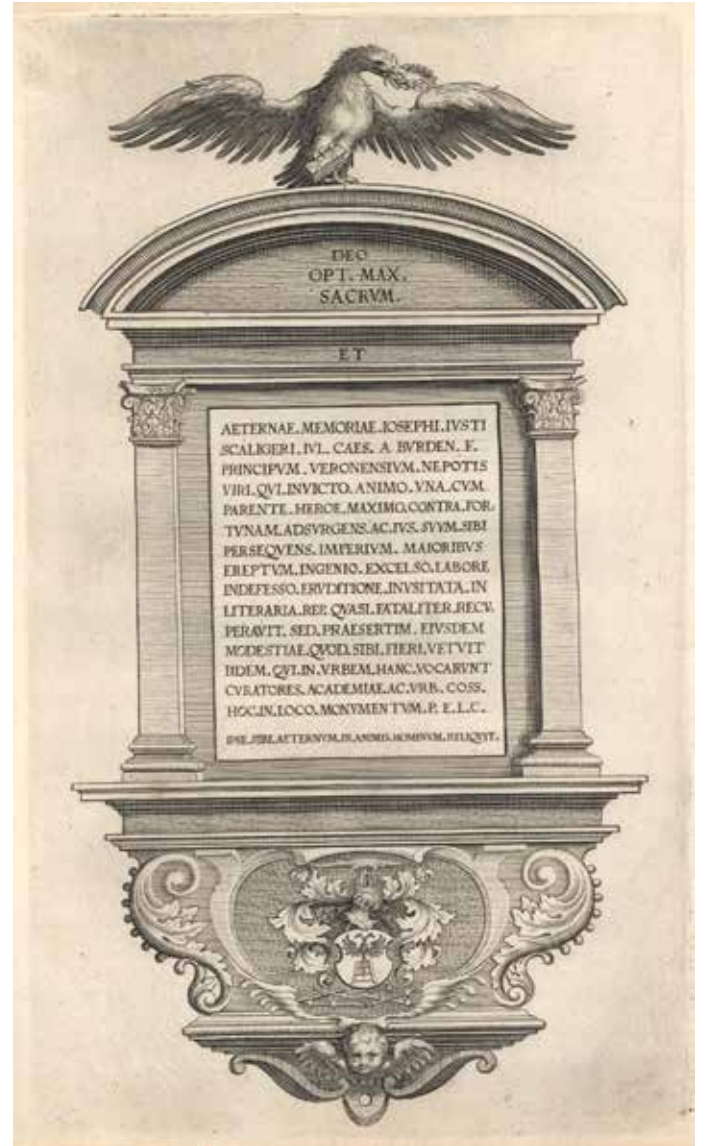 DEO
OPT. MAX.
SACRVM.
ET
AETERNAE. MEMORIAE. IOSEPHI. IVSTI
SCALIGERI. IVL. CAES. A BVRDEN. F.
PRINCIPVM. VERONENSIVM. NEPOTIS
VIRI. QVI. INVICTO. ANIMO. VNA. CVM
PARENTE. HEROE. MAXIMO. CONTRA. FOR-
TVNAM. ADSVRGENS. AC. IVS. SVVM. SIBI
PERSEQVENS. IMPERIVM. MAIORIBVS
EREPTVM. INGENIO. EXCELSO. LABORE
INDEFESSO. ERVDITIONE. INVSITATA. IN
LITERARIA. REP. QVASI. FATALITER. RECV-
PERAVIT. SED. PRAESERTIM. EIVSDEM
MODESTIAE. QVOD. SIBI. FIERI. VETVIT
IIDEM. QVI. IN. VRBEM. HANC. VOCARVNT
CVRATORES. ACADEMIAE. AC. VRB. COSS.
HOC. IN. LOCO. MONVMENTVM. P. E. L. C.
IPSE. SIBI. AETERNVM. IN. ANIMIS. HOMINVM. RELIQVIT.